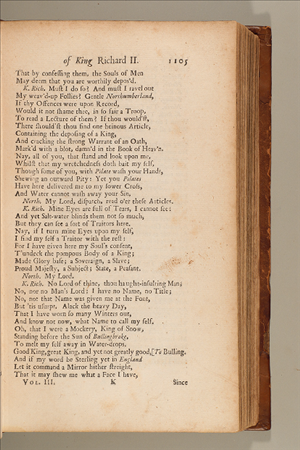 of King Richard II. 1105
That by confessing them, the Souls of Men
May deem that you are worthily depos'd.
K. Rich. Must I do so? And must I ravel out
My weav'd-up Follies? Gentle Northumberland,
If thy Offences were upon Record,
Would it not shame thee, in so fair a Troop,
To read a Lecture of them? If thou would'st,
There should'st thou find one heinous Article,
Containing the deposing of a King,
And cracking the strong Warrant of an Oath,
Mark'd with a blot, damn'd in the Book of Heav'n.
Nay, all of you, that stand and look upon me,
Whilst that my wretchedness doth bait my self,
Though some of you, with Pilate wash your Hands,
Shewing an outward Pity: Yet you Pilates
Have here deliver'd me to my sower Cross,
And Water cannot wash away your Sin.
North. My Lord, dispatch, read o'er these Articles.
K. Rich. Mine Eyes are full of Tears, I cannot see:
And yet Salt-water blinds them not so much,
But they can see a sort of Traitors here.
Nay, if I turn mine Eyes upon my self,
I find my self a Traitor with the rest:
For I have given here my Soul's consent,
T'undeck the pompous Body of a King;
Made Glory base; a Sovereign, a Slave;
Proud Majesty, a Subject; State, a Peasant.
North. My Lord.
K. Rich. No Lord of thine, thou haught-insulting Man;
No, nor no Man's Lord: I have no Name, no Title;
No, not that Name was given me at the Font,
But 'tis usurpt. Alack the heavy Day,
That I have worn so many Winters out,
And know not now, what Name to call my self.
Oh, that I were a Mockery, King of Snow,
Standing before the Sun of Bullingbroke,
To melt my self away in Water-drops.
Good King, great King, and yet not greatly good, [To Bulling.
And if my word be Sterling yet in England
Let it command a Mirror hither straight,
That it may shew me what a Face I have,
VOL. III. K Since